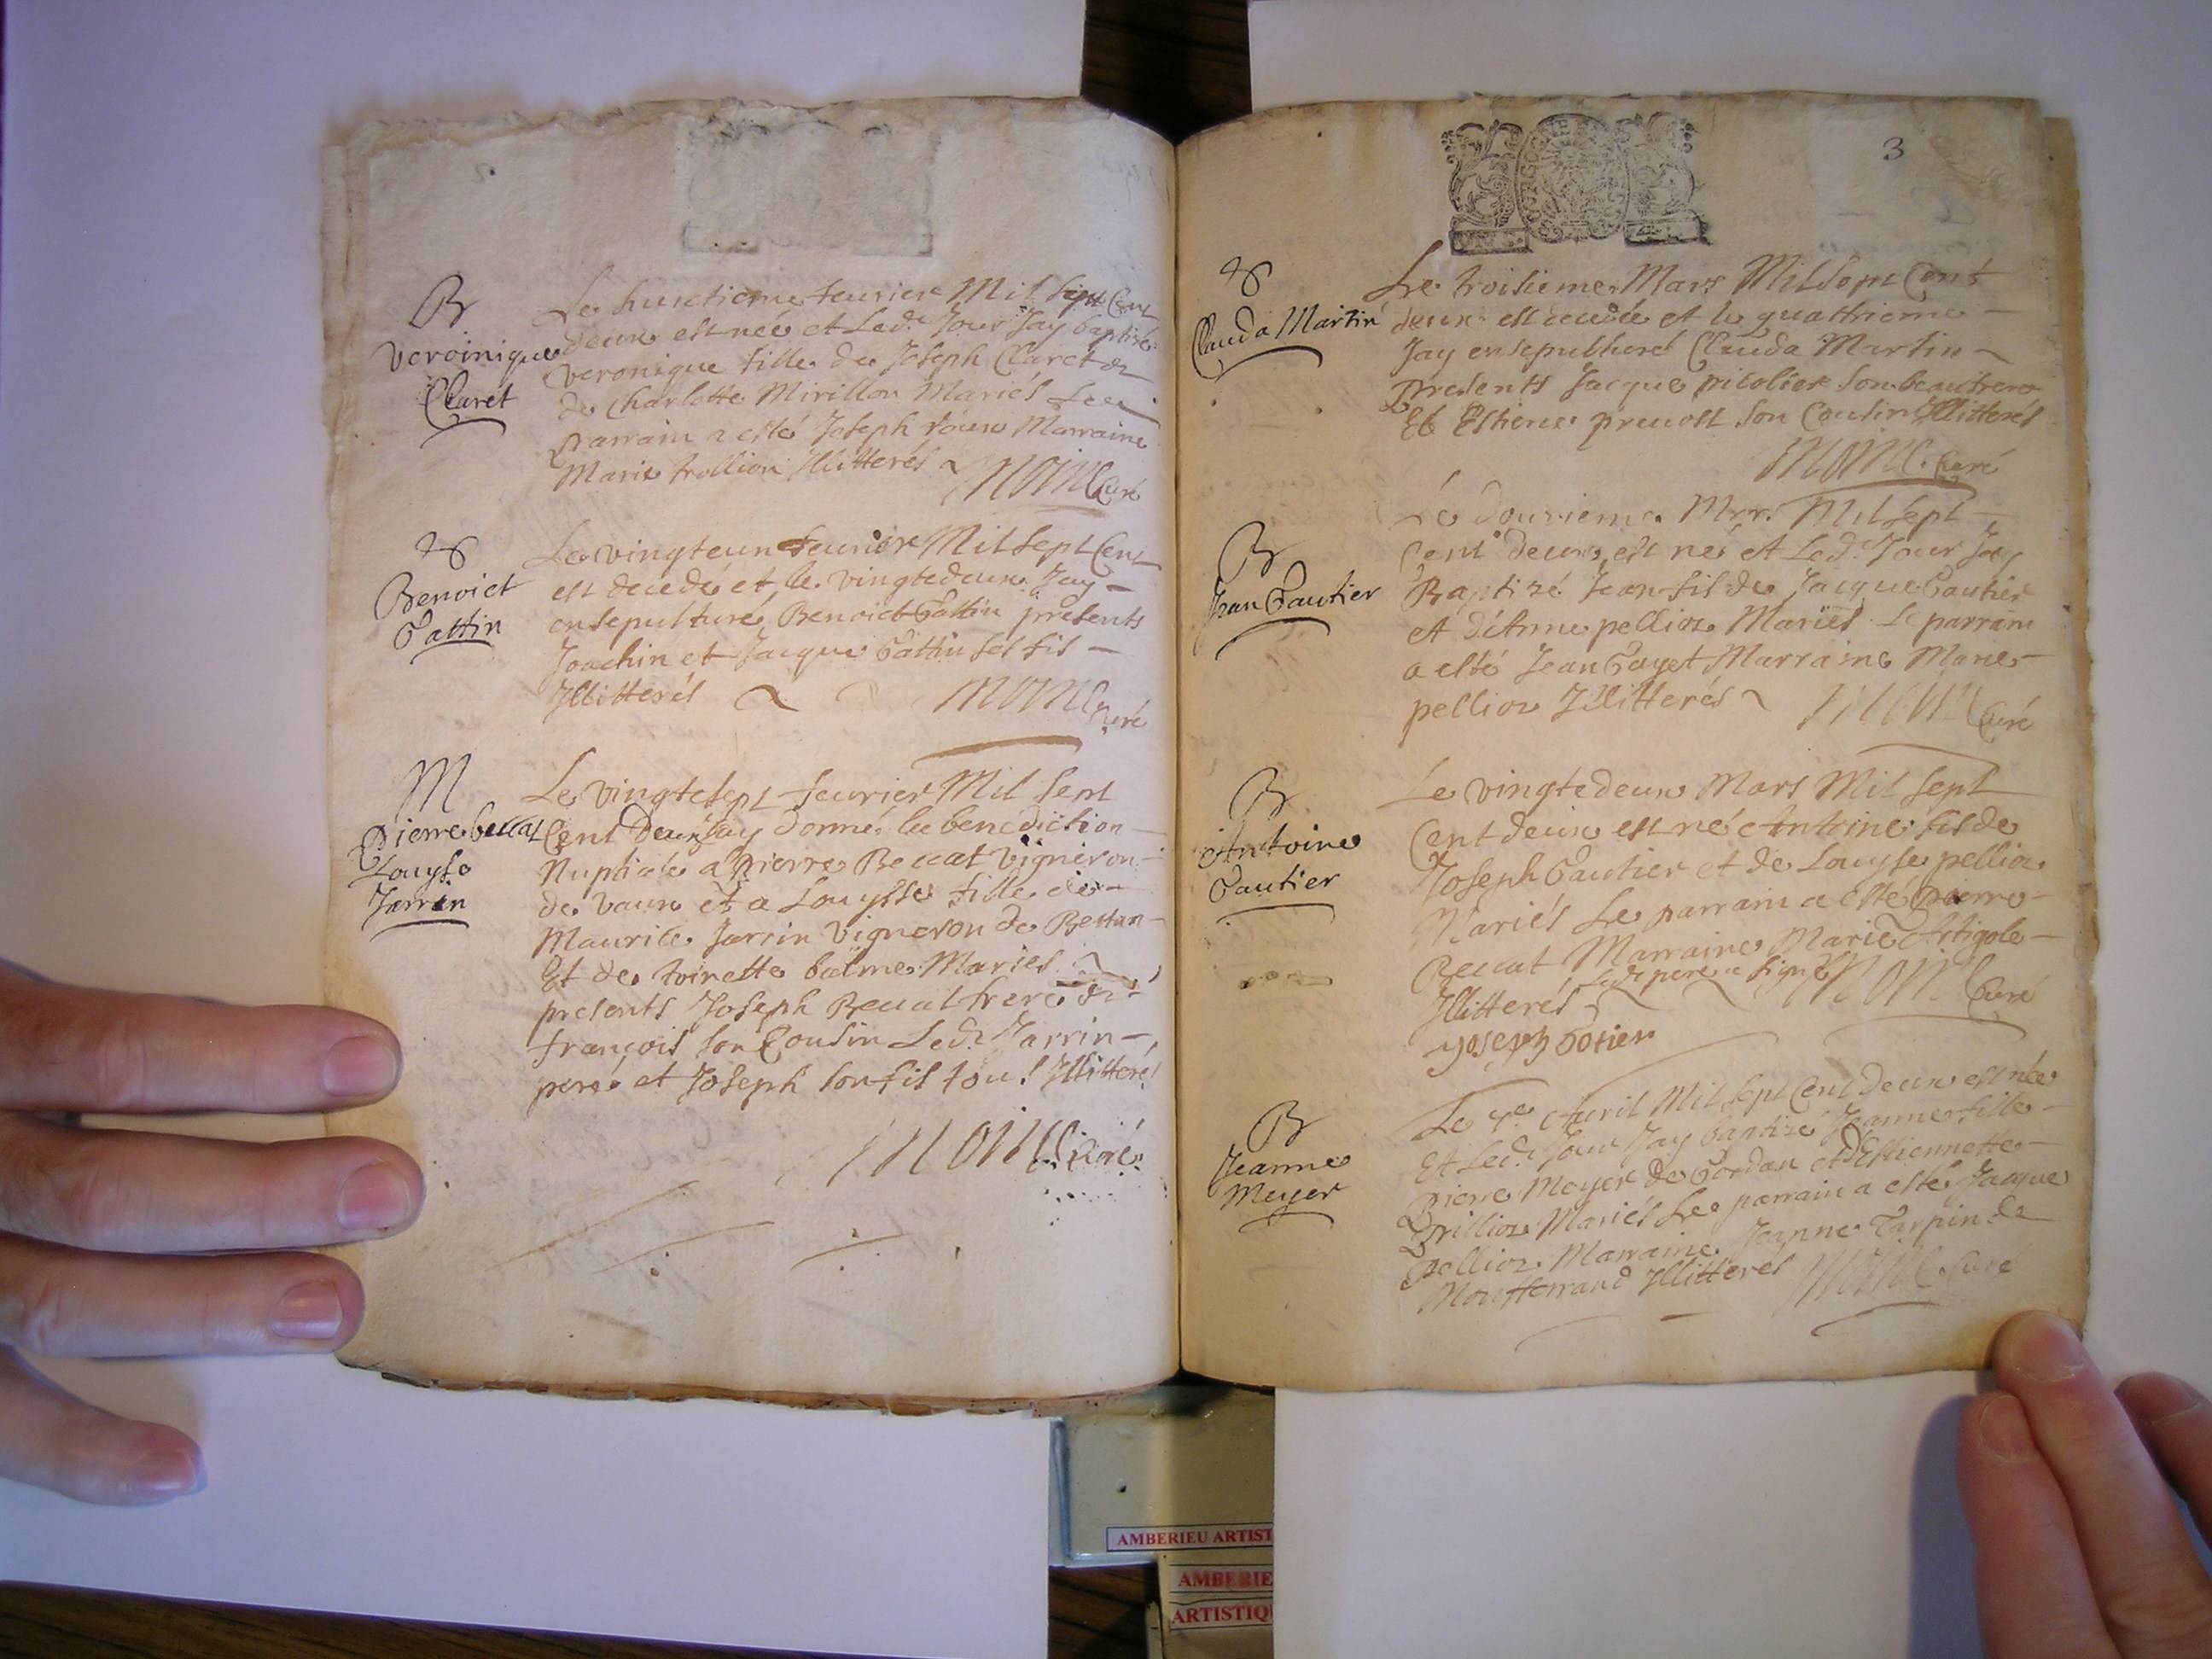 B
Veroinique
Claret
Le huictieme feurier Mil Sept Cent
deux est née et Led.t Jour Jay baptisé
Veronique fille de Joseph Claret et
de Charlotte Mirillon Mariés Le
parrain a esté Joseph Marraine
Marie trollion Illitterés Moine Curé
Benoict
Gattin
Le vingteun feurier Mil Sept Cent
est decedé et le vingtedeux Jay
ensepulturé Benoict Gattin presents
Joachin et Jacque Gattin ses fils
Illitterés Moine Curé
M
Pierre beccat
Louyse
Jarrin
Le vingtesept feurier Mil Sept
Cent Deux Jay donné la benediction
Nuptiale a Pierre Beccat Vigneron
de vaux et a Louysse fille de
Maurice Jarrin Vigneron de Bettan
Et de toinette balme Mariés
presents Joseph Beccat frere et
françois son Cousin Led.t Jarrin
pere et Joseph son fils tous Illitterés
Moine Curé
3
Clauda Martin
Le troisieme Mars Mil Sept Cent
deux est decedée et le quattrieme
Jay ensepulturé Clauda Martin
presents Jacque picolier son beaufrere
Et Estiene preuost son Cousin Illitterés
Moine Curé
B
Jean Gautier
Le douzieme Mars Mil Sept
Cent deux est né et Led.t Jour Jay
Baptizé Jean fils de Jacque Gautier
et d'Anne pellioz Mariés Le parrain
a esté Jean Gayet Marraine Marie
pellioz Illitterés Moine Curé
B
Antoine
Gautier
Le vingtedeux Mars Mil Sept
Cent deux est né Antoine fils de
Joseph Gautier et de Louyse pellioz
Mariés Le parrain a esté Pierre
Beccat Marraine Marie Artigole
Illitterés Led.t pere a signé Moine Curé
yoseph gotier
B
Jeanne
Meyer
Le 7.e Auril Mil Sept Cent Deux est née
Et Led.t Jour Jay baptizé Jeanne fille
Pierre Meyer de Gordan et d'Estiennette
Mariés Le parrain a esté Jacque
pellioz Marraine Jeanne Tarpin de
Montferrand Illitterés Moine Curé
AMBERIEU ARTIST
AMBERIE
ARTISTIQU